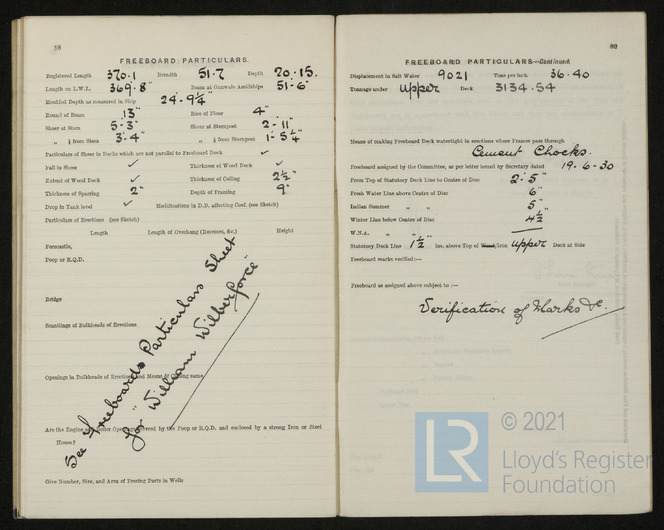 88
FREEBOARD PARTICULARS.
Registered Length 370.1 Breadth 51.7 Depth 20.15.
Length on L.W.L. 369'8" Beam at Gunwale Amidships 51'-6"
Moulded Depth as measured in Ship 24'-9¼"
Round of Beam 13" Rise of Floor 4"
Sheer at Stem 5'-3" Sheer at Sternpost 2'-11"
" ¼ from Stem 3'-4" " ¼ from Sternpost 1'-5¼"
Particulars of Sheer in Decks which are not parallel to Freeboard Deck ✓
Fall in Sheer ✓ Thickness of Wood Deck ✓
Extent of Wood Deck ✓ Thickness of Ceiling 2½"
Thickness of Sparring 2" Depth of Framing 9"
Drop in Tank level ✓ Modifications in D.B. affecting Coef. (see Sketch)
Particulars of Erections (see Sketch)
Length Length of Overhang (Recesses, &c.) Height
Forecastle,
Poop or R.Q.D.
Bridge
Scantlings of Bulkheads of Erections
Openings in Bulkheads of Erections and Means of Closing same
Are the Engine and Boiler Openings covered by the Poop or R.Q.D. and enclosed by a strong Iron or Steel
House?
Give Number, Size, and Area of Freeing Ports in Wells
See Freeboard Particulars Sheet
for "William Wilberforce"
89
FREEBOARD PARTICULARS—Continued
Displacement in Salt Water 9021 Tons per inch 36.40
Tonnage under upper Deck 3134.54
Means of making Freeboard Deck watertight in erections where Frames pass through
Cement Chocks.
Freeboard assigned by the Committee, as per letter issued by Secretary dated 19.6.30
From Top of Statutory Deck Line to Centre of Disc 2'.5"
Fresh Water Line above Centre of Disc 6"
Indian Summer " " 5"
Winter Line below Centre of Disc 4½
W.N.A. " "
Statutory Deck Line 1½" ins. above Top of Wood/Iron upper Deck at Side
Freeboard marks verified:—
Freeboard as assigned above subject to:—
Verification of Marks &c.
LR
© 2021
Lloyd's Register
Foundation